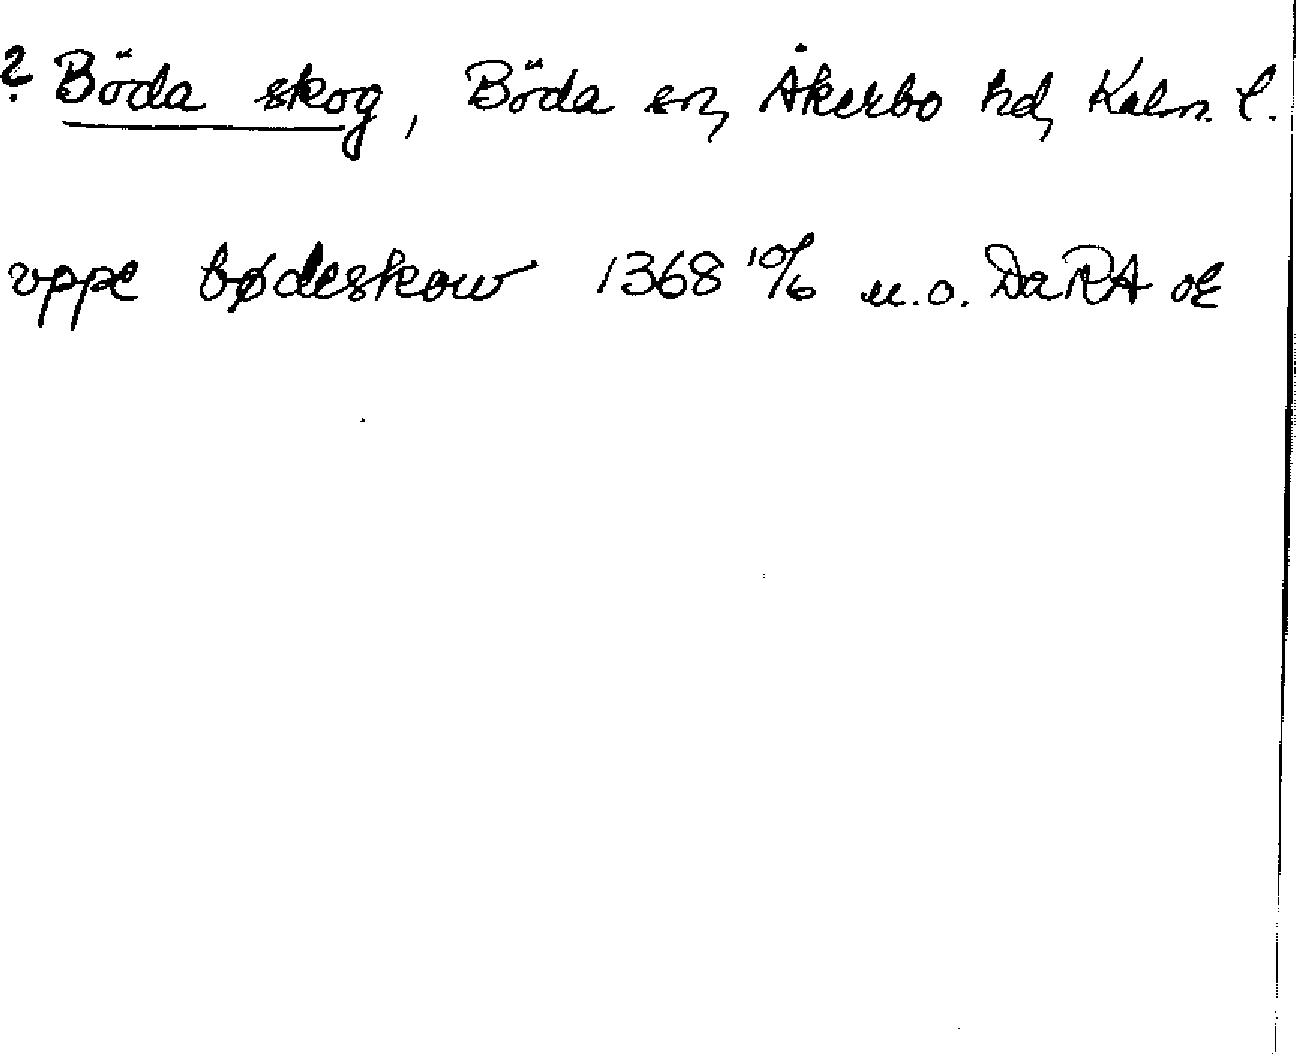 ? Böda skog, Böda sn, Åkerbo hd, Kalm. l.
vppe bødeskow 1368 10/6 u.o. DaRA oE